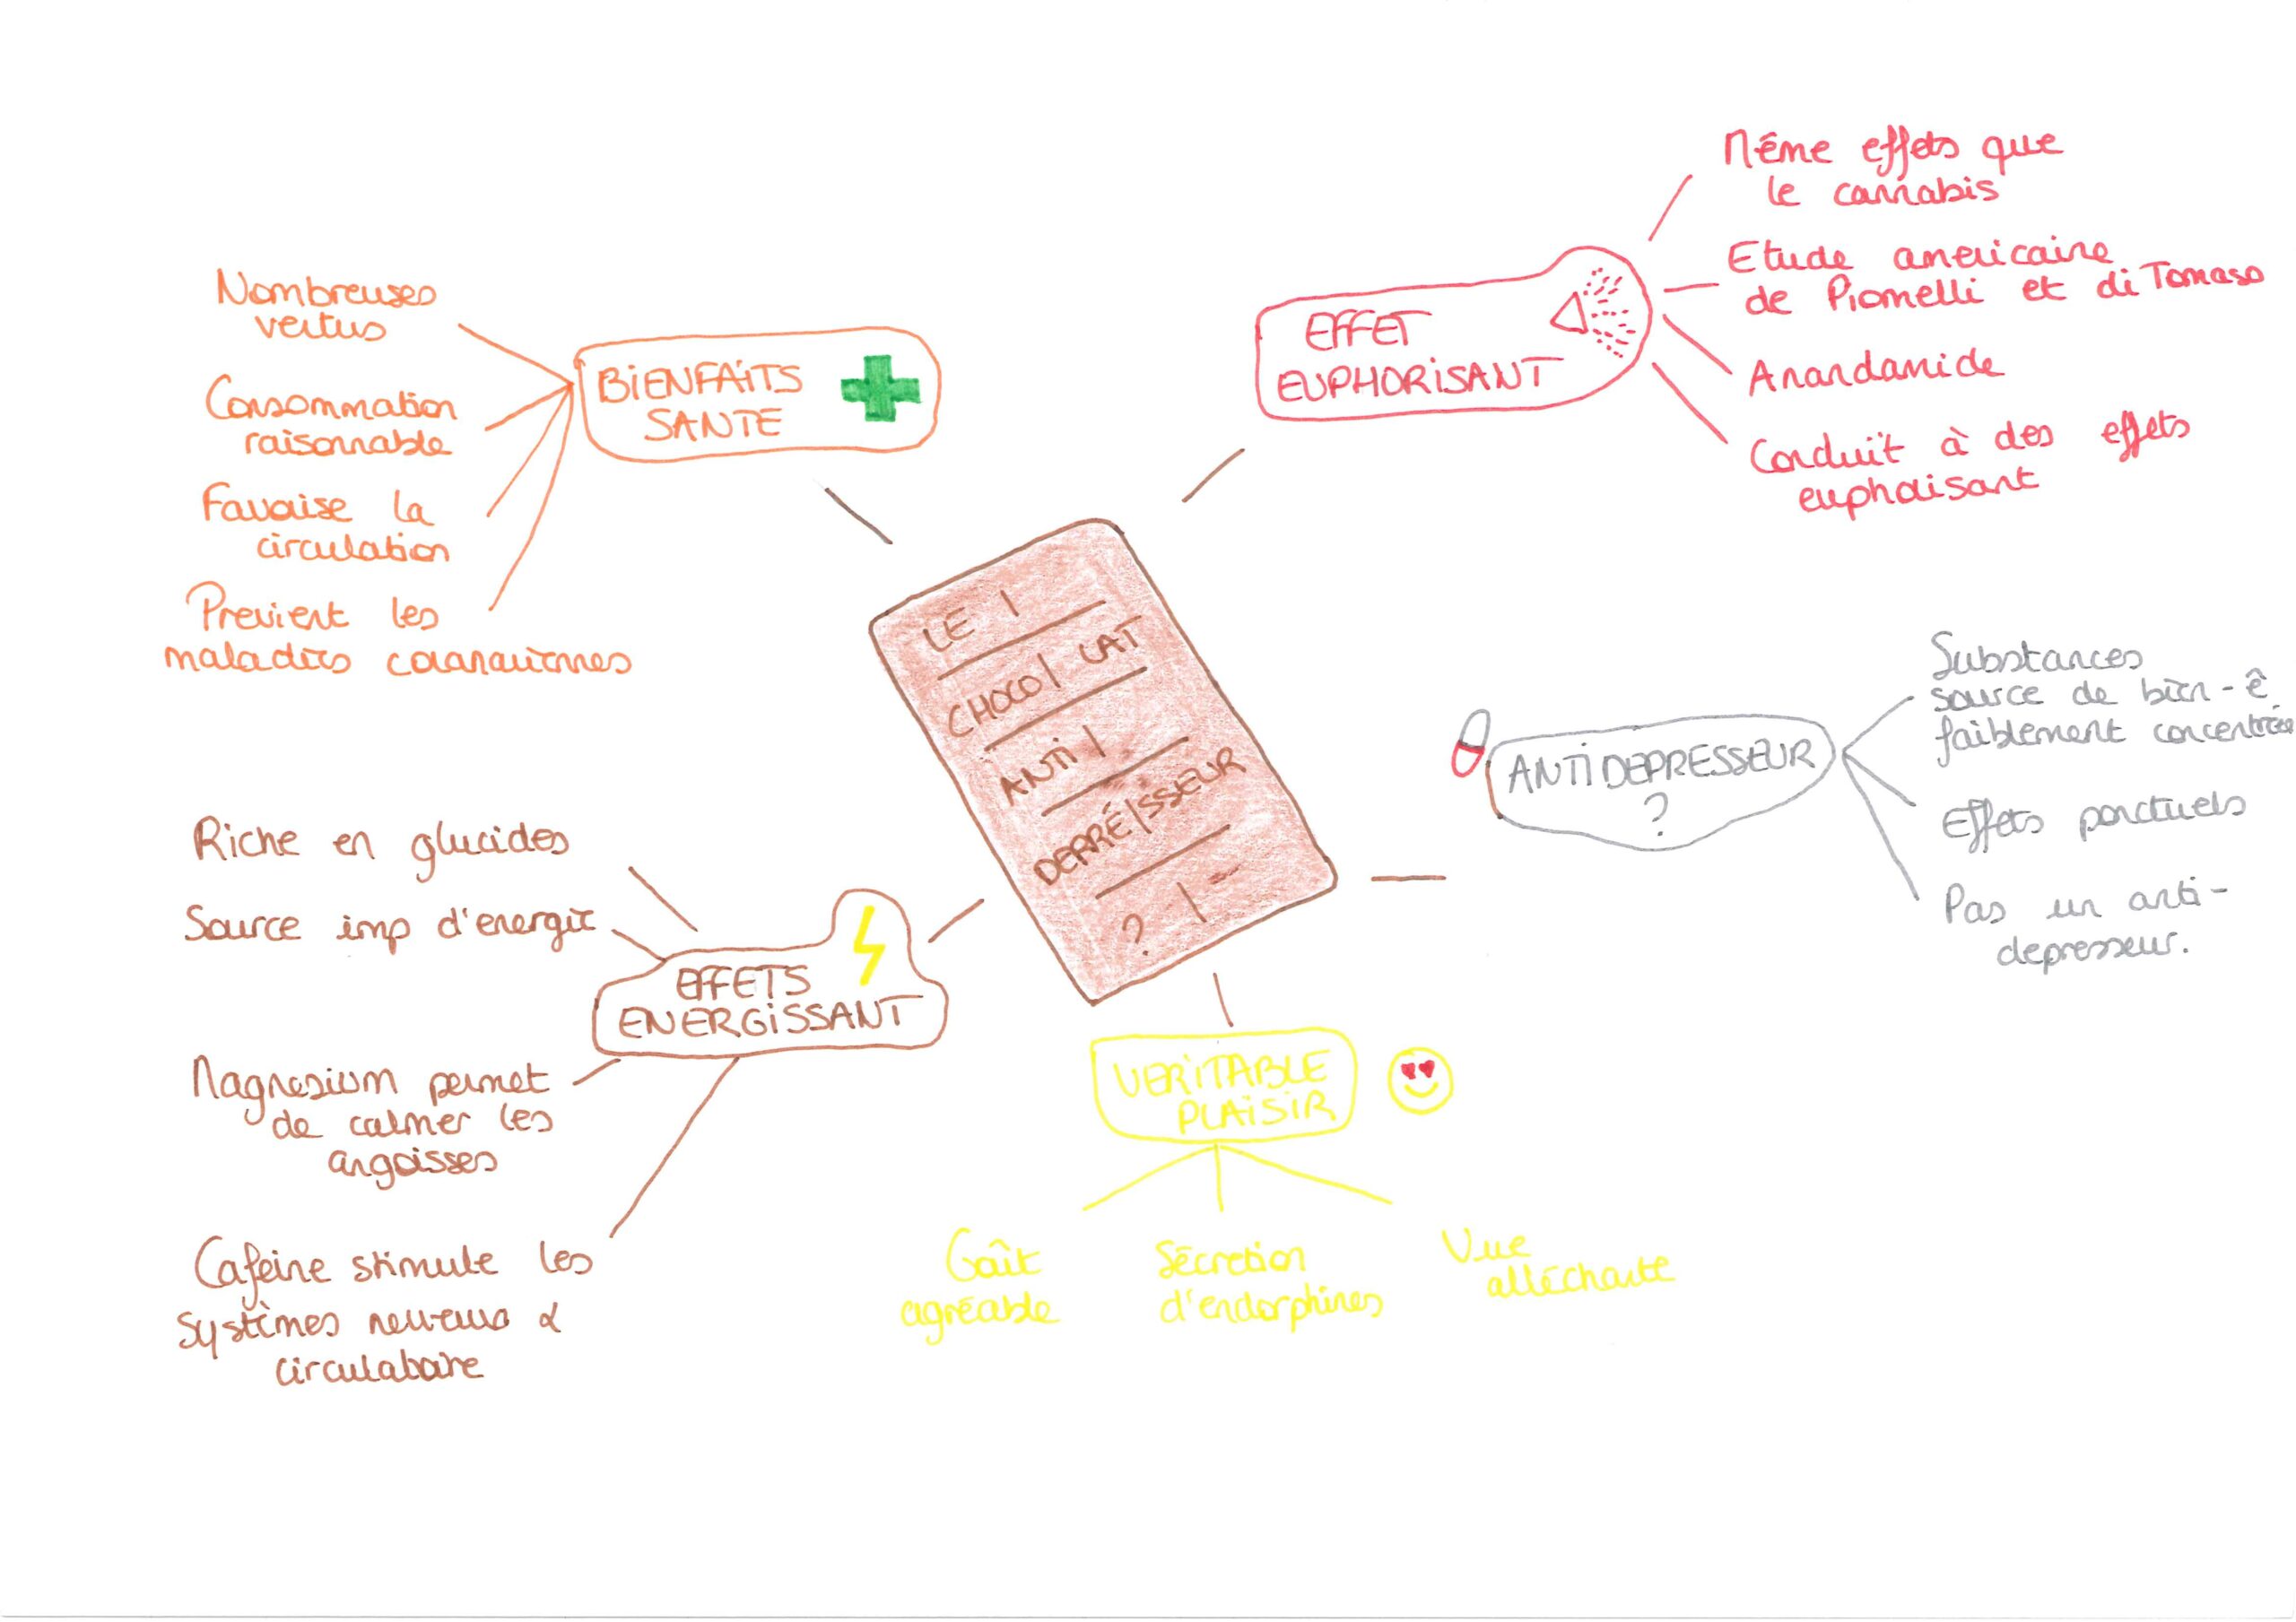 Nombreuses
vertus
Consommation
raisonnable
Favorise la
circulation
Previent les
maladies coronariennes
BIENFAITS
SANTE
EFFET
EUPHORISANT
Même effets que
le cannabis
Etude americaine
de Piomelli et di Tomaso
Anandamide
Conduit à des effets
euphorisant
LE
CHOCO LAT
ANTI
DEPRÉ SSEUR
?
ANTIDEPRESSEUR
?
Substances
source de bien-ê
faiblement concentrée
Effets ponctuels
Pas un anti-
depresseur.
Riche en glucides
Source imp d'energie
EFFETS
ENERGISSANT
Magnesium permet
de calmer les
angoisses
Cafeine stimule les
systèmes nerveux &
circulatoire
VERITABLE
PLAISIR
Goût
agréable
Sécretion
d'endorphines
Vue
alléchante